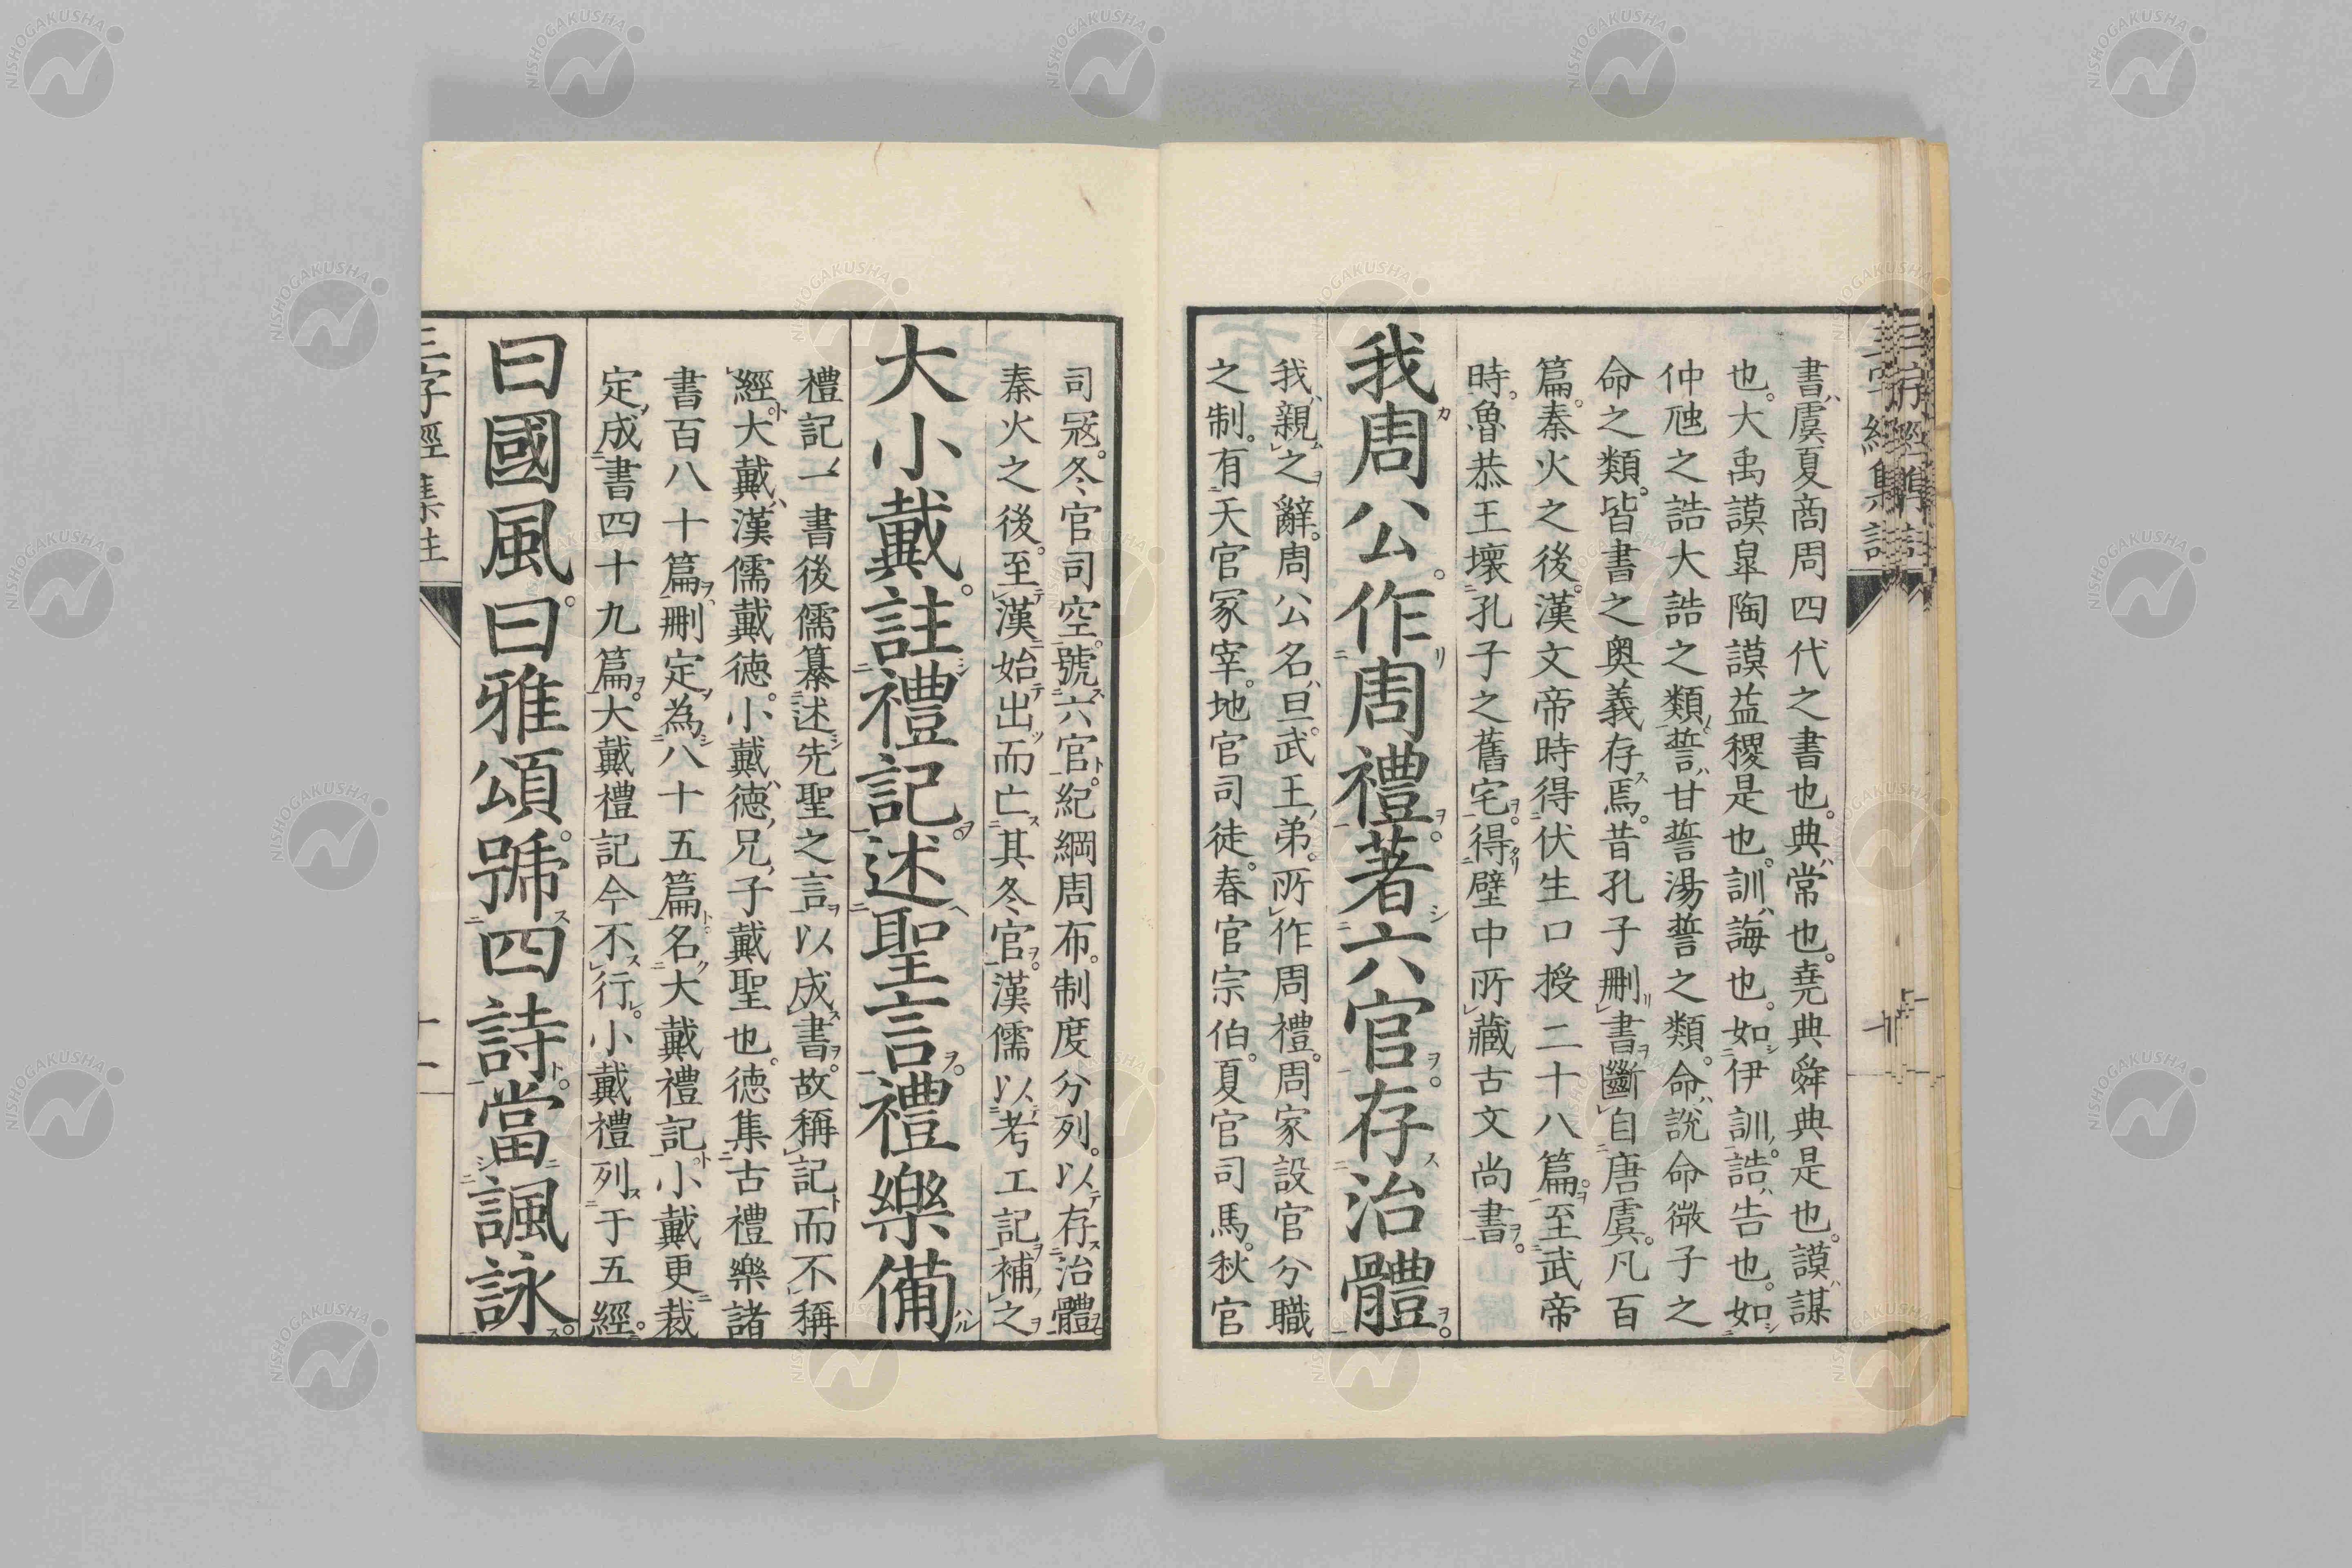 書虞夏商周四代之書也。典常也。堯典舜典是也。謨謀
也。大禹謨皐陶謨益稷是也。訓誨也。如伊訓。誥告也。如
仲虺之誥大誥之類。誓甘誓湯誓之類。命說命微子之
命之類。皆書之奥義存焉。昔孔子刪書斷自唐虞。凡百
篇。秦火之後。漢文帝時得伏生口授二十八篇。至武帝
時。魯恭王壞孔子之舊宅。得壁中所藏古文尚書。
我周公。作周禮。著六官。存治體。
我親之辭。周公名旦。武王弟。所作周禮。周家設官分職
之制。有天官冢宰。地官司徒。春官宗伯。夏官司馬。秋官
司寇。冬官司空。號六官。紀綱周布。制度分列。以存治體。
秦火之後。至漢始出而亡其冬官。漢儒以考工記補之
大小戴。註禮記。述聖言。禮樂備
禮記一書後儒纂述先聖之言以成書。故稱記而不稱
經。大戴漢儒戴德。小戴德兄子戴聖也。德集古禮樂諸
書百八十篇刪定為八十五篇。名大戴禮記。小戴更裁
定成書四十九篇。大戴禮記今不行。小戴禮列于五經。
曰國風。曰雅頌。號四詩。當諷詠。
三字經集註
十一
NISHOGAKUSHA